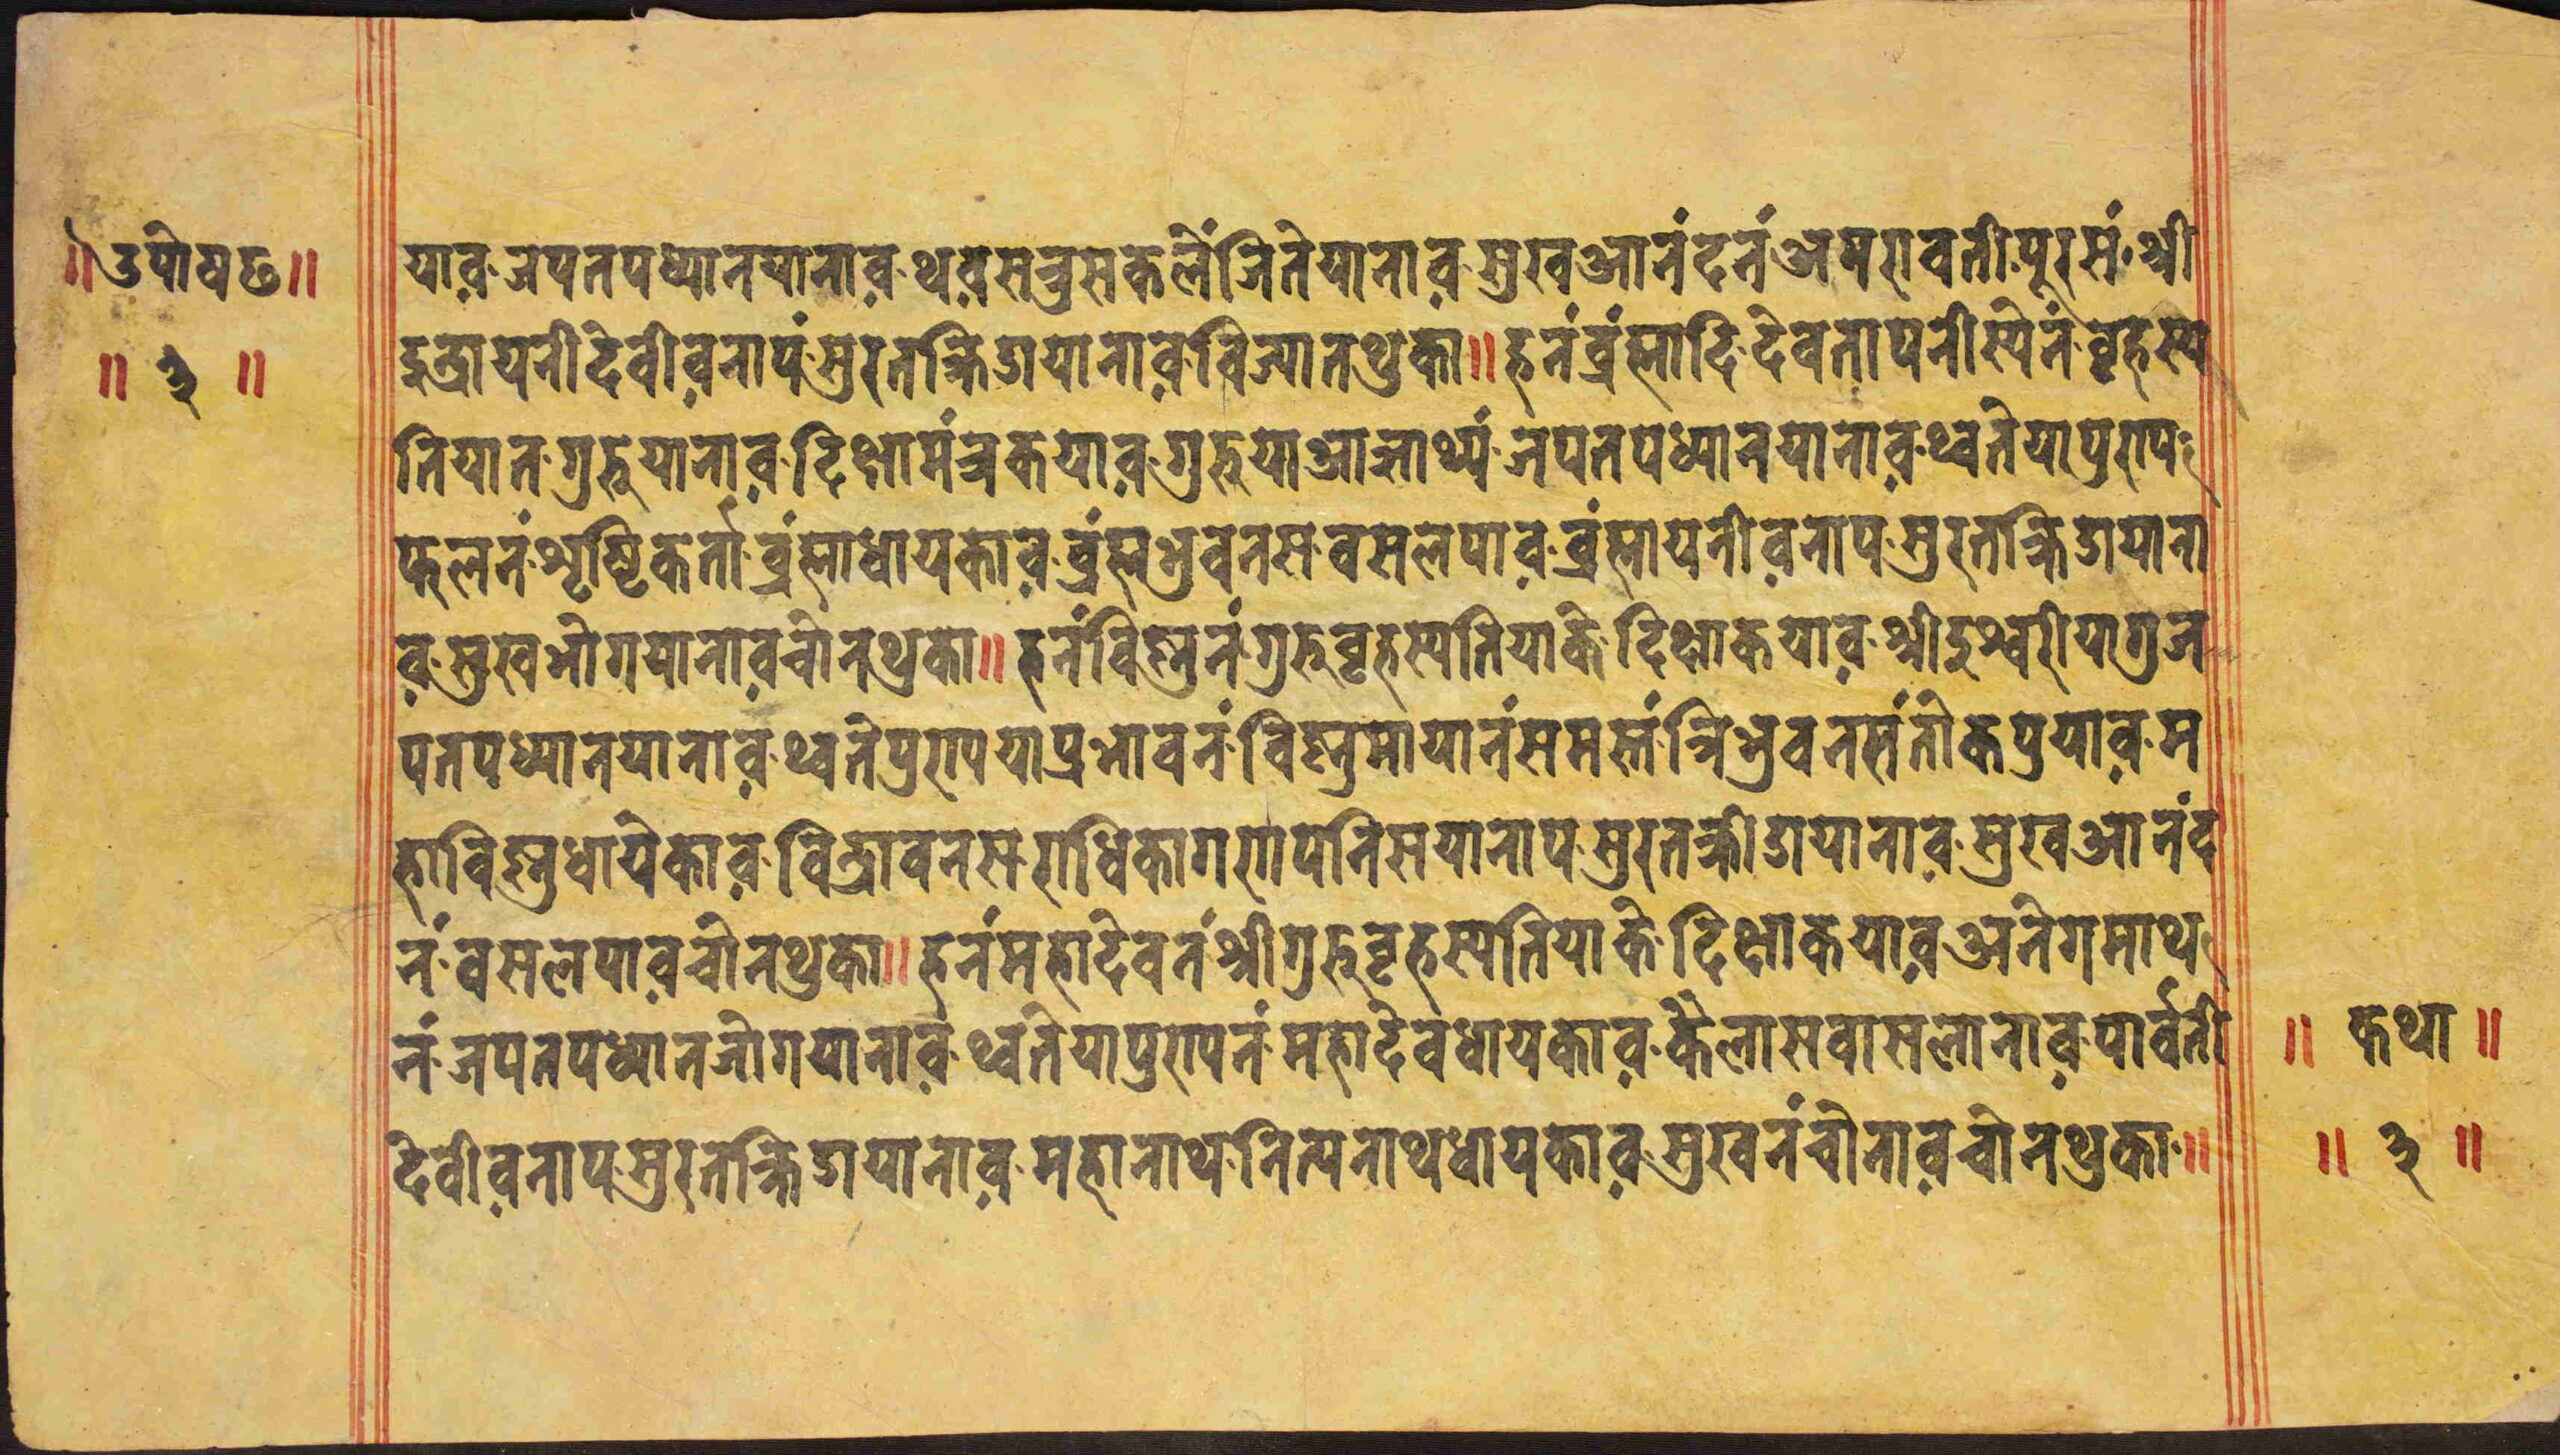 ॥उपोषछ॥
॥ ३ ॥
याव़ जपतपध्यानयानाव़ थव़सत्रुसकलें जितेयानाव़ सुखआनंदनं अमरावतीपुरसं श्री
इन्द्रायनीदेवीव़नापं सुरतक्रिडायानाव़ विज्यातथुका॥ हनंव्रंह्मादि देवतापनीस्येनं वृहस्प
तियात गुरुयानाव़ दिक्षामंत्रकयाव़ गुरुयाआज्ञाथ्यं जपतपध्यानयानाव़ थ्वतेयापुराप
फलनं शृष्टिकर्ता व्रंह्माधायकाव़ व्रंह्मभुवनस वसलपाव़ व्रंह्मायनीव़नाप सुरतक्रिडायाना
व़ सुखभोगयानाव़चोनथुका॥ हनंविष्नुनं गुरुवृहस्पतियाके दिक्षाकयाव़ श्रीइश्वरीयागुज
पतपध्यानयानाव़ थ्वतेपुरापयाप्रभावनं विष्नुमायानं समस्तं त्रिभुवनसं तोकपुयाव़ म
हाविष्नुधायेकाव़ विन्द्रावनस राधिकागरापनिसयानाप सुरतक्रीडायानाव़ सुखआनंद
नं वसलपाव़चोनथुका॥ हनंमहादेवनं श्रीगुरुवृहस्पतियाके दिक्षाकयाव़ अनेगमाथ
नं जपतपध्यानजोगयानाव़ थ्वतेयापुरापनं महादेवधायकाव़ कैलासवासलानाव़ पार्वती
देवीव़नाप सुरतक्रिडायानाव़ महानाथ नित्यनाथधायकाव़ सुखनंचोनाव़चोनथुका॥
॥ कथा ॥
॥ ३ ॥